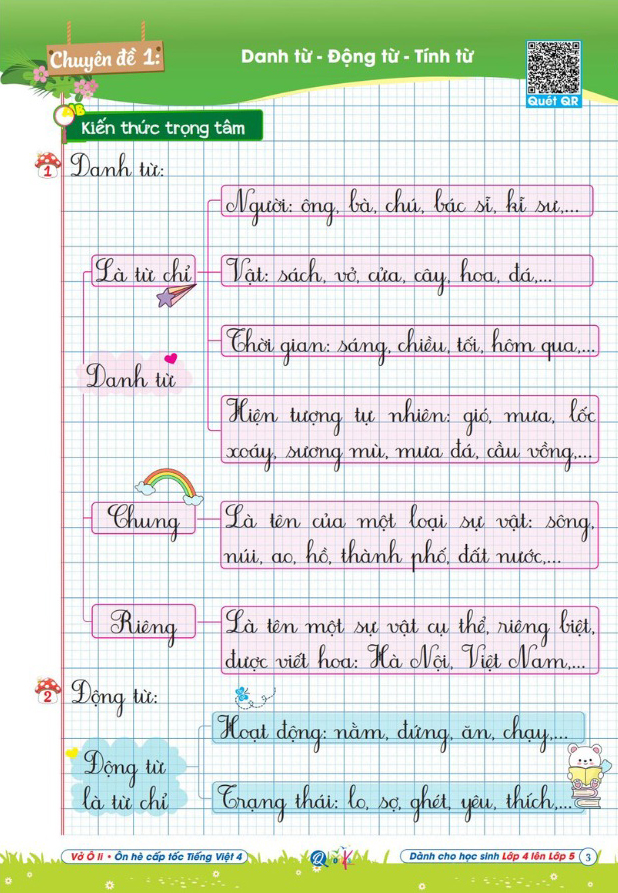 Chuyên đề 1:
Danh từ - Động từ - Tính từ
Quét QR
Kiến thức trọng tâm
1 Danh từ:
Người: ông, bà, chú, bác sĩ, kĩ sư,...
Là từ chỉ
Vật: sách, vở, cửa, cây, hoa, đá,...
Thời gian: sáng, chiều, tối, hôm qua,...
Danh từ
Hiện tượng tự nhiên: gió, mưa, lốc
xoáy, sương mù, mưa đá, cầu vồng,...
Chung
Là tên của một loại sự vật: sông,
núi, ao, hồ, thành phố, đất nước,...
Riêng
Là tên một sự vật cụ thể, riêng biệt,
được viết hoa: Hà Nội, Việt Nam,...
2 Động từ:
Hoạt động: nằm, đứng, ăn, chạy,...
Động từ
là từ chỉ
Trạng thái: lo, sợ, ghét, yêu, thích,...
Vở Ô li • Ôn hè cấp tốc Tiếng Việt 4
Dành cho học sinh Lớp 4 lên Lớp 5 3